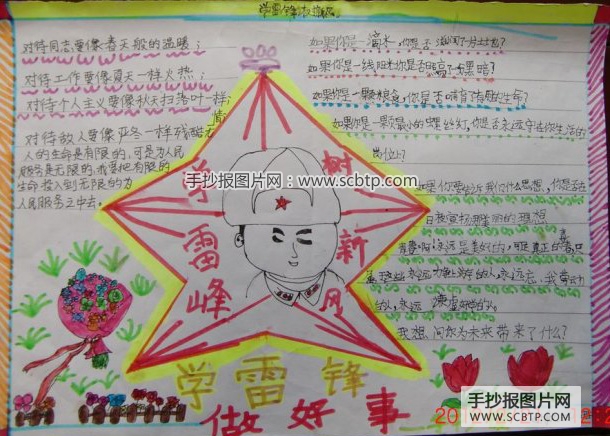 学雷锋
对待同志要像春天般的温暖；
对待工作要像夏天一样火热；
对待个人主义要像秋天扫落叶一样；
对待敌人要像严冬一样残酷无情
人的生命是有限的,可是为人民
服务是无限的,我要把有限的
生命投入到无限的为
人民服务之中去。
如果你是一滴水,你是否滋润了一寸土地?
如果你是一线阳光,你是否照亮了一分黑暗?
如果你是一颗粮食,你是否哺育了有用的生命?
如果你是一颗最小的螺丝钉,你是否永远守在你生活的
岗位上?
如果你要告诉我们什么思想,你是否在
日夜宣扬那最美的理想
青春啊,永远是美好的,可是真正的青春,只
属于永远力争上游的人,永远忘我劳动
的人,永远谦虚的人!
我想,问你为未来带来了什么?
学雷峰
树新风
手抄报图片网:www.scbtp.com
学雷锋
做好事
手抄报图片网
WWW.SCBTP.COM